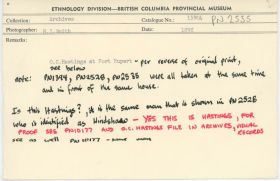 ETHNOLOGY DIVISION—BRITISH COLUMBIA PROVINCIAL MUSEUM
Subject: Archives Catalogue No. PN 2535
Photographer: Date:
Remarks:
O.C. Hastings at Fort Rupert - per reverse of original print,
see below
note: PN1344, PN2528, PN2535 were all taken at the same time
and in front of the same house.
Is this Hastings?, it is the same man that is shown in PN2528
who is identified as Hindshaw - YES THIS IS HASTINGS, FOR
PROOF SEE PN10177 AND O.C. HASTINGS FILE IN ARCHIVES, VISUAL
RECORDS
see as well PN 10177